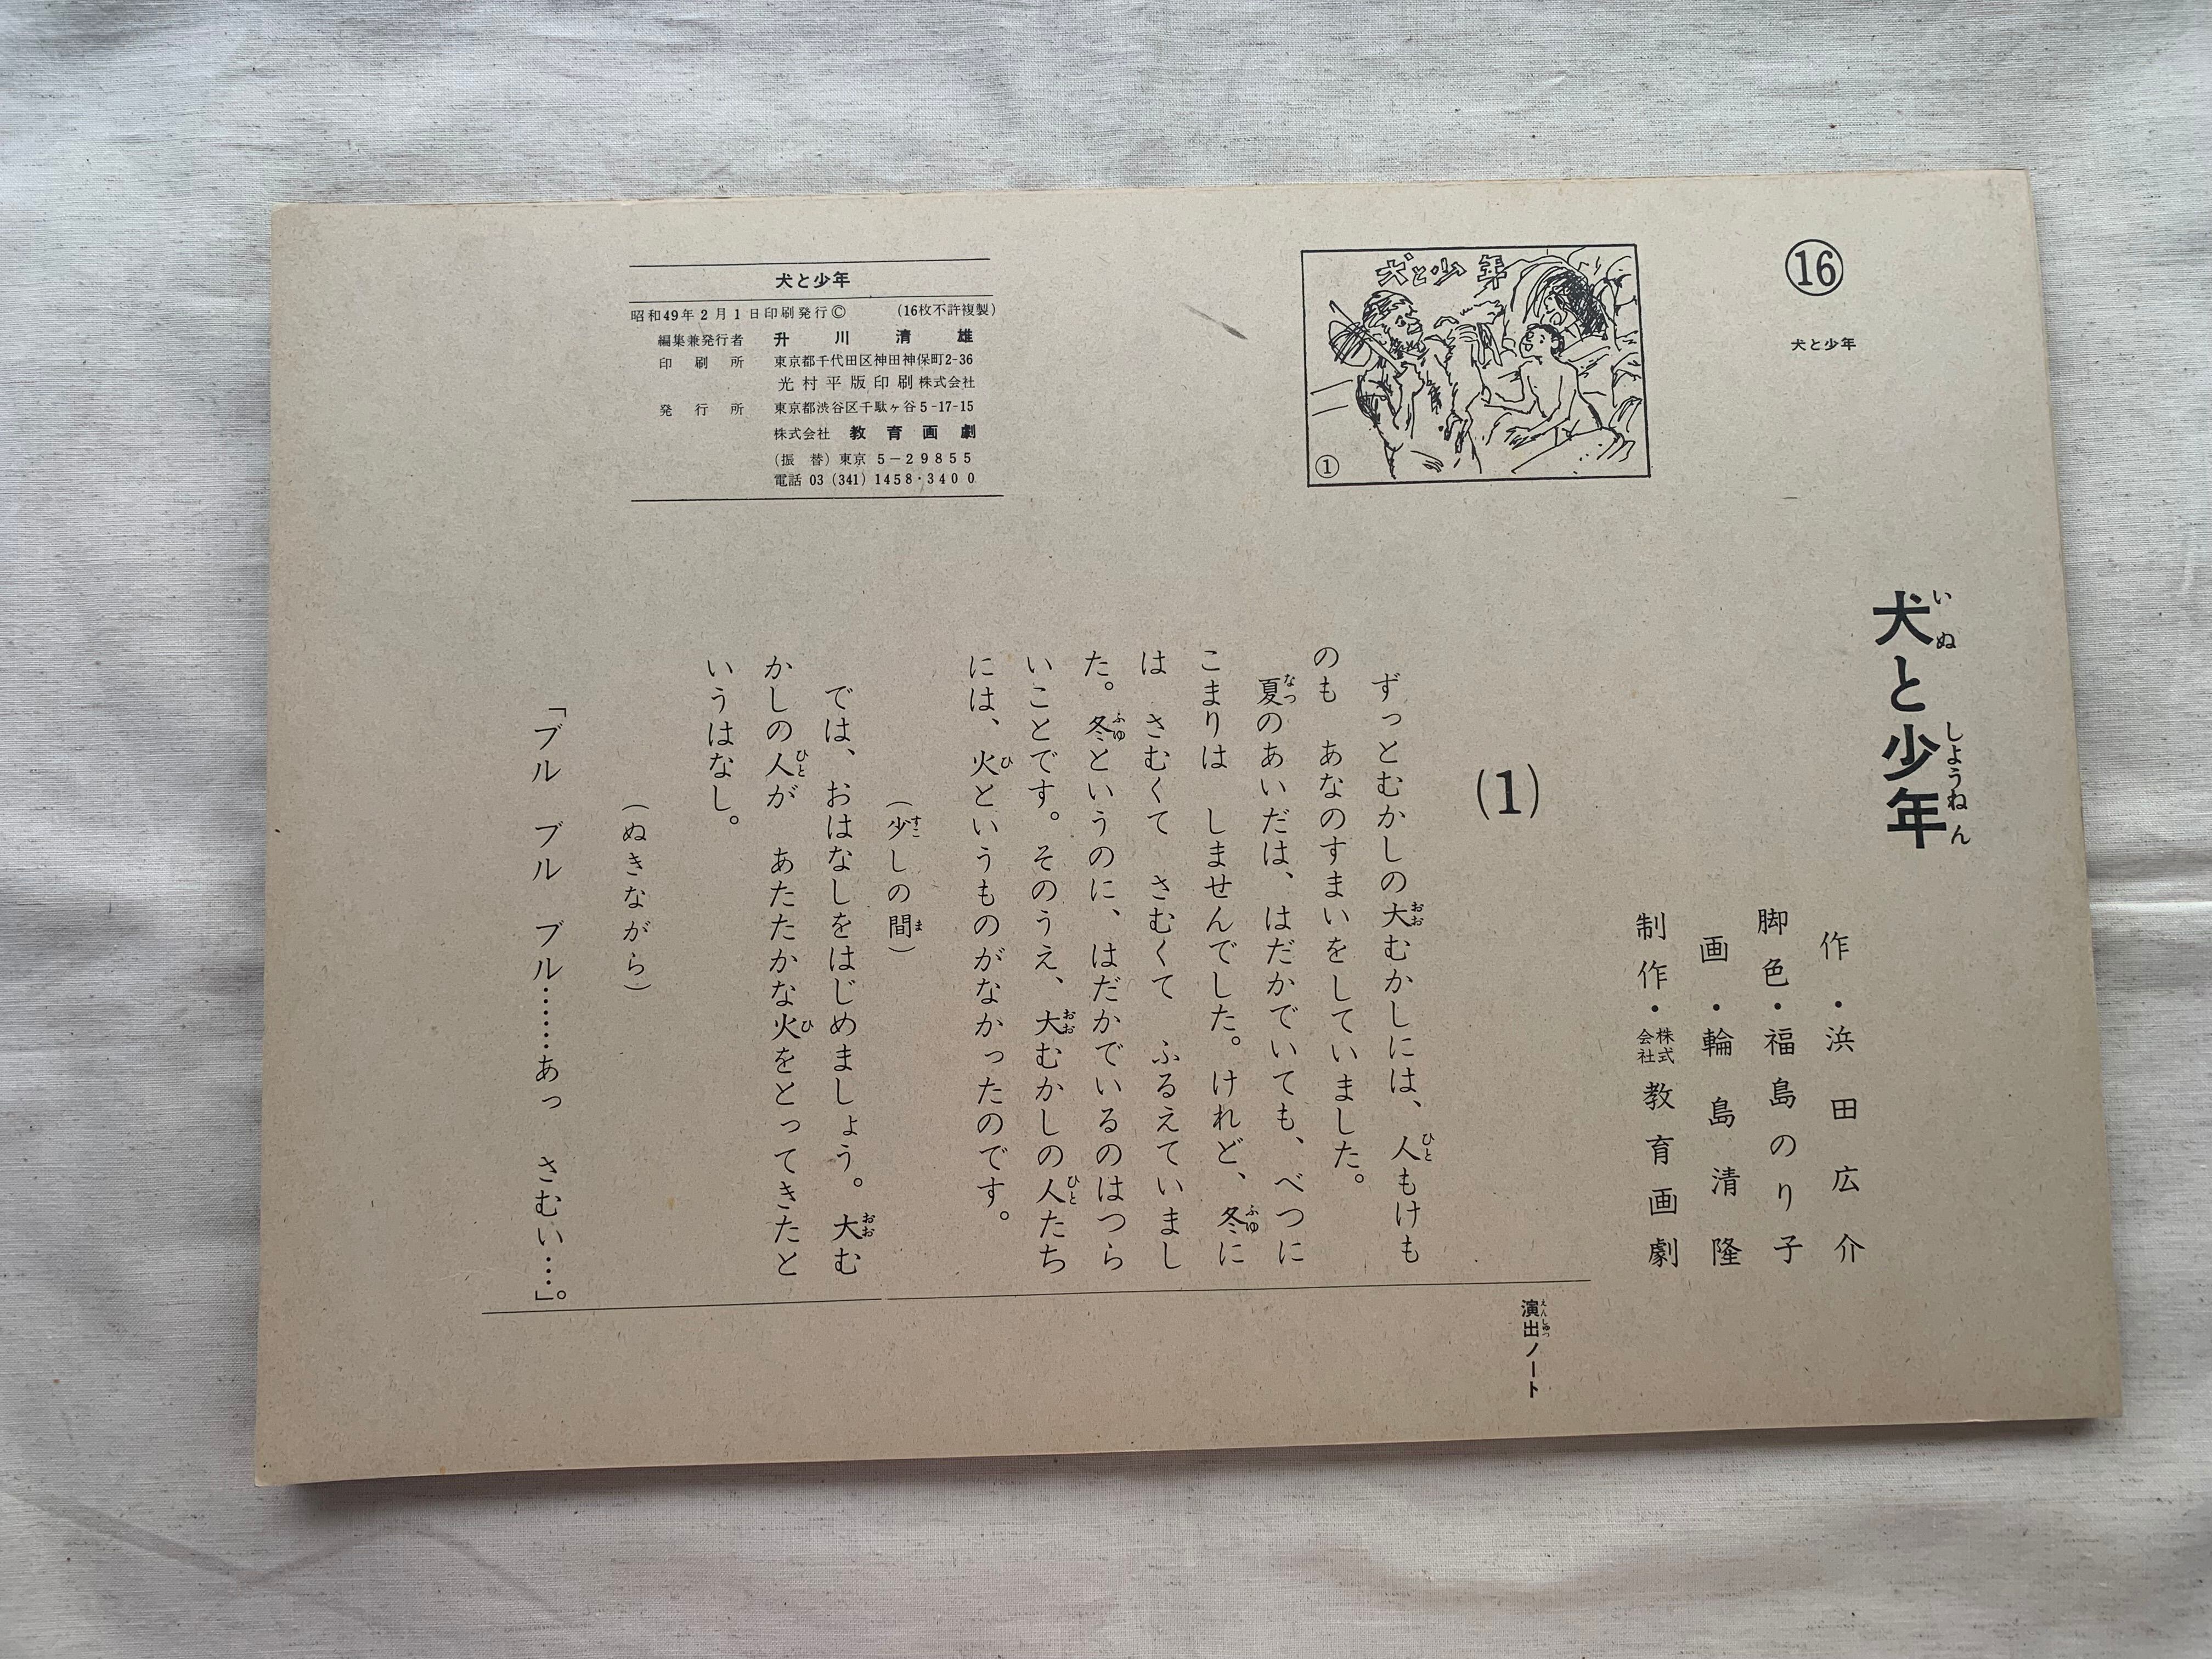 ⑯
犬と少年
犬と少年
①
犬と少年
昭和49年2月1日印刷発行© (16枚不許複製)
編集兼発行者 升川清雄
印刷所 東京都千代田区神田神保町2-36
光村平版印刷株式会社
発行所 東京都渋谷区千駄ヶ谷5-17-15
株式会社 教育画劇
(振替)東京 5-29855
電話 03(341)1458・3400
犬と少年
いぬ しようねん
作・浜田広介
脚色・福島のり子
画・輪島清隆
制作・株式会社教育画劇
(1)
ずっとむかしの大むかしには、人もけも
のも あなのすまいをしていました。
夏のあいだは、はだかでいても、べつに
こまりは しませんでした。けれど、冬に
は さむくて さむくて ふるえていまし
た。冬というのに、はだかでいるのはつら
いことです。そのうえ、大むかしの人たち
には、火というものがなかったのです。
(少しの間)
では、おはなしをはじめましょう。大む
かしの人が あたたかな火をとってきたと
いうはなし。
(ぬきながら)
「ブル ブル ブル……あっ さむい…」。
演出ノート